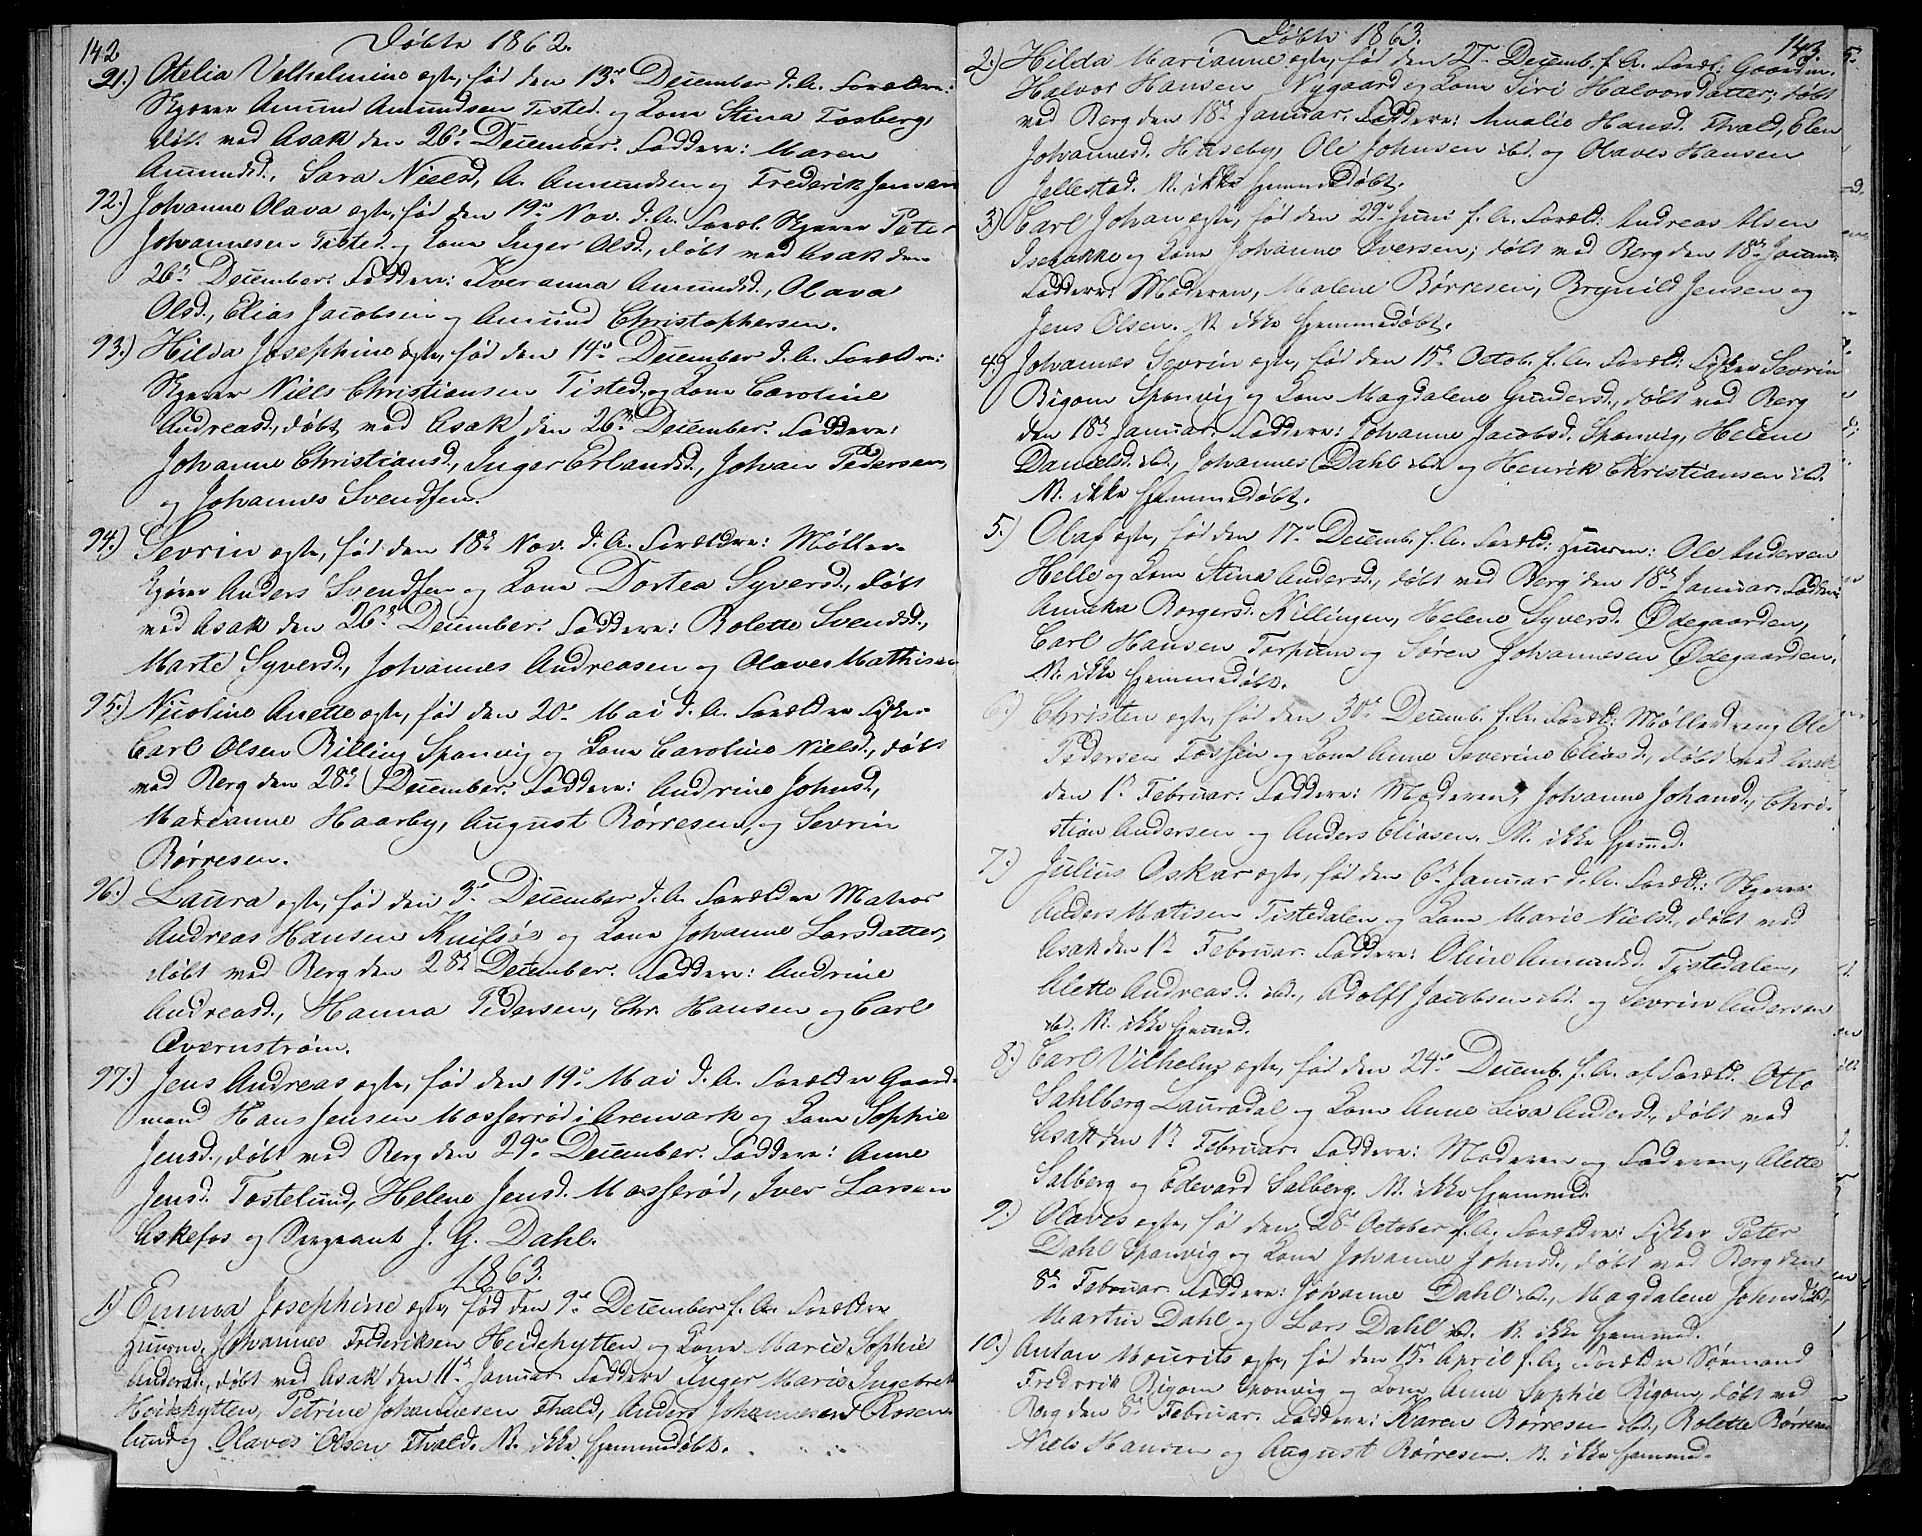 142
Døbte 1862.
91.) Otelia Vilhelmine egte, født den 13de December d. A. Forældre:
Skjærer Amund Amundsen Tisted. og Kone Stina Tosberg,
døbt ved Asak den 26de December. Faddere: Maren
Amundsd., Sara Nielsd., A. Amundsen og Frederik Jensen
92.) Johanne Olava egte, fød den 19de Nov. d. A. Foræl. Skjærer Peter
Johannesen Tisted. og Kone Inger Olsd., døbt ved Asak den
26de December. Faddere: Iveranna Amundsd., Olava
Olsd., Elias Jacobsen og Amund Christophersen.
93.) Hilda Josephine egte, fød den 14de December d. A. Forældre:
Skjærer Niels Christiansen Tisted. og Kone Caroline
Andreasd., døbt ved Asak den 26de December. Faddere:
Johanne Christiansd., Inger Erlandsd., Johan Pedersen,
og Johannes Svendsen.
94.) Sevrin egte, fød den 18de Nov. d. A. Forældre: Møller-
kjører Anders Svendsen og Kone Dortea Syversd., døbt
ved Asak den 26de December. Faddere: Bolette Svendsd.,
Marte Syversd., Johannes Andreasen og Olaves Mathisen
95.) Nicoline Anette egte, fød den 20de Mai d. A. Forældre Fisker
Carl Olsen Billing Sponvig og Kone Caroline Nielsd., døbt
ved Berg den 28de December. Faddere: Andrine Johnsd.,
Marianne Haarby, August Børresen, og Sevrin
Børresen.
96.) Laura egte, fød den 3de December d. A. Forældre Matros
Andreas Hansen Knifsøe og Kone Johanne Larsdatter,
døbt ved Berg den 28de December. Faddere: Andrine
Andreasd., Hanna Pedersen, Chr. Hansen og Carl
Qvernstrøm.
97.) Jens Andreas egte, fød den 19de Mai d. A. Forældre Gaard-
mand Hans Jensen Mosserød i Aremark og Kone Sophie
Jensd., døbt ved Berg den 29de December. Faddere: Anne
Jensd. Tostelund, Helene Jensd. Mosserød, Iver Larsen
Askefos og Sergeant J. G. Dahl.
1863.
1.) Emma Josephine egte, fød den 9de December f. A. Forældre
Huusm. Johannes Frederiksen Heidehytten og Kone Marie Sophie
Andersd., døbt ved Asak den 11te Januar. Faddere Inger Marie Ingebretsd.
Heidehytten, Petrine Johannesen Thvald, Anders Johannesen Rosen-
lund og Olaves Olsen Thvald. N. ikke hjemmedøbt.
Døbte 1863.
143.
2.) Hilda Marianne egte, fød den 27de Decemb. f. A. Foræl: Gaardm.
Halvor Hansen Nygaard og Kone Siri Halvorsdatter, døbt
ved Berg den 18de Januar. Faddere: Amalie Hansd. Thvald, Elen
Johannesd. Huseby, Ole Johnsen ibd. og Olaves Hansen
Jellestad. N. ikke hjemmedøbt.
3.) Carl Johan egte, fød den 29de Juni f. A. Foræld: Andreas Olsen
Isebakke og Kone Johanne Iversen, døbt ved Berg den 18de Januar.
Faddere: Moderen, Malene Børresen, Brynild Jensen og
Jens Olsen. N. ikke hjemmedøbt.
4.) Johannes Sevrin egte, fød den 15de Octob. f. A. Foræld: Fisker Sevrin
Bigom Sponvig og Kone Magdalene Gundersd., døbt ved Berg
den 18de Januar. Faddere: Johanne Jacobsd. Sponvig, Helene
Danielsd. ibd., Johannes Dahl ibd. og Henrik Christiansen ibd.
N. ikke hjemmedøbt.
5.) Olaf egte, fød den 17de Decemb. f. A. Foræld: Huusm: Ole Andersen
Helle og Kone Stina Andersd., døbt ved Berg den 18de Januar. Faddere:
Annika Borgersd. Killingen, Helene Syversd. Ødegaarden,
Carl Hansen Torpum og Søren Johannesen Ødegaarden.
N. ikke hjemmedøbt.
6.) Christen egte, fød den 30de Decemb. f. A. Foræld: Mølledreng Ole
Pedersen Fossen og Kone Anne Severine Eliasd., døbt ved Asak
den 1te Februar. Faddere: Moderen, Johanne Johansd., Chri-
stian Andersen og Anders Eliasen. N. ikke hjemmed.
7.) Julius Oskar egte, fød den 6te Januar d. A. Foræld: Skjærer
Anders Matisen Tistedalen og Kone Marie Nielsd., døbt ved
Asak den 1te Februar. Faddere: Oline Amundsd. Tistedalen,
Alette Andreasd. ibd., Adolff Jacobsen ibd. og Sevrin Andersen
ibd. N. ikke hjemmed.
8.) Carl Vilhelm egte, fød den 24de Decemb. f. A. af Foræld. Otto
Sahlberg Lauradal og Kone Anne Lisa Andersd., døbt ved
Asak den 1te Februar. Faddere: Moderen og Faderen, Alette
Salberg og Edevard Salberg. N. ikke hjemmed.
9.) Olaves egte, fød den 28de October f. A. Forældre: Fisker Peter
Dahl Sponvig og Kone Johanne Johnsd., døbt ved Berg den
8de Februar. Faddere: Johanne Dahl ibd., Magdalene Johnsd. ibd.,
Martin Dahl og Lars Dahl ibd. N. ikke hjemmed.
10.) Anton Mourits egte, fød den 15de April f. A. Forældre Sømand
Fredrik Bigom Sponvig og Kone Anne Sophie Bigom, døbt ved
Berg den 8de Februar. Faddere: Karen Børresen ibd., Bolette Børresen
Niels Hansen og August Børresen. N. ikke hjemmed.